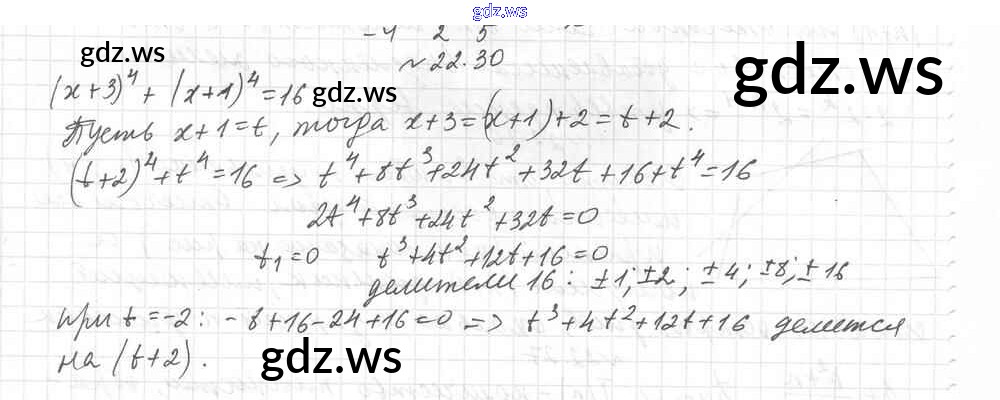 gdz.ws
-4 2 5
№ 22.30
gdz.ws
(x+3)⁴ + (x+1)⁴ = 16 gdz.ws
gdz.ws
Пусть x+1=t, тогда x+3=(x+1)+2=t+2.
(t+2)⁴+t⁴=16 => t⁴+8t³+24t²+32t+16+t⁴=16
2t⁴+8t³+24t²+32t=0
t₁=0 t³+4t²+12t+16=0
делители 16: ±1; ±2; ±4; ±8; ±16
при t=-2: -8+16-24+16=0 => t³+4t²+12t+16 делится
на (t+2).
gdz.ws